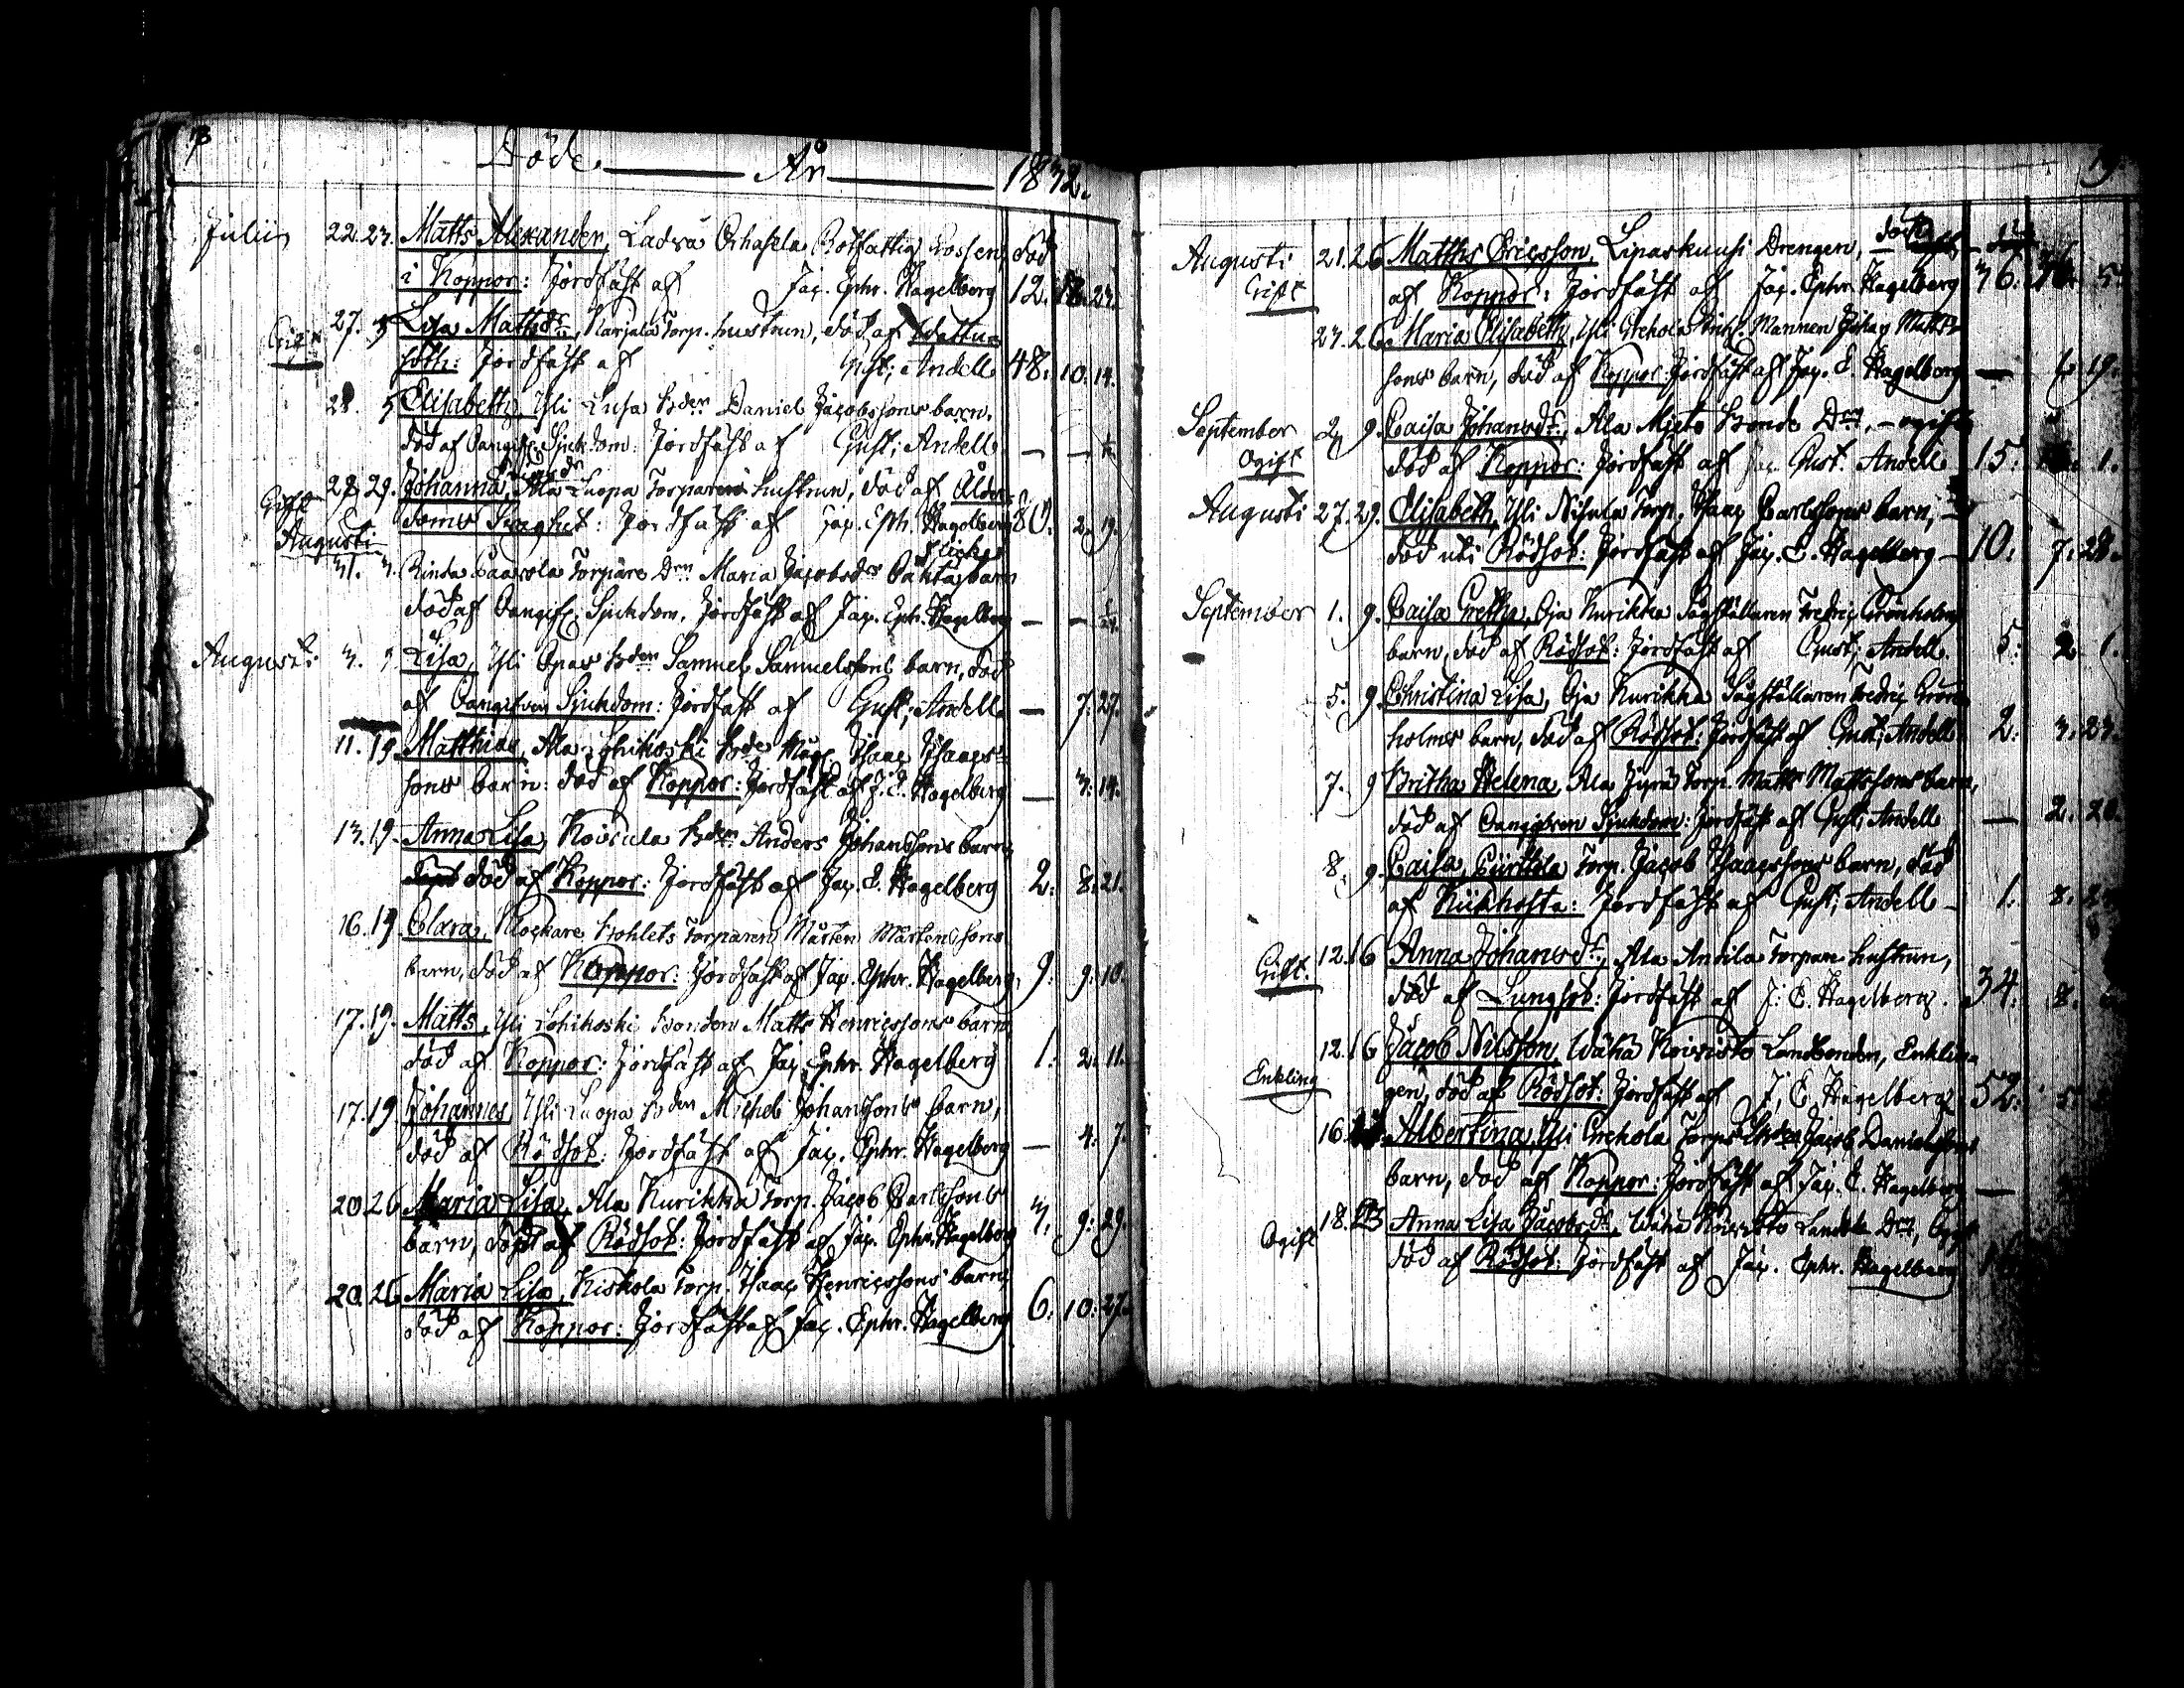 Döde. År 1832.
Julii 22. 23. Matts Alexander, Ladva Orhasela Rotfattig Gossen, död
i Koppor: Jordfäst af Jac. Ephr. Hagelberg 12.
Gift 27. 5 Lisa Mattsdr, Karjala Torp. hustrun, död af Wattu=
soth: Jordfäst af Gust; Andell 48. 10. 14.
5 Elisabeth, Yli Lusa Bden Daniel Jacobssons barn,
död af Oangifv. Sjukdom: Jordfäst af Gust; Andell — —
Gift 29. Johanna, Ala Luopa Torparens hustrun, död af Ålder=
doms Svaghet: Jordfäst af Jac. Eph. Hagelberg 80. 2. 19.
Augusti
31. Rinda Paavola Torpare Drn Maria Jacobsdrs Oäkta barn
död af Oangifv. Sjukdom, Jordfäst af Jac. Eph. Hagelberg — —
Augusti 3. Lisa, Yli Opas Bden Samuel Samuelssons barn, död
af Oangifven Sjukdom: Jordfäst af Gust; Andell — 7. 27.
11. 19. Matthias, Ala Lohikoski Bde Måg Isaac Isaacs=
sons barn: död af Koppor: Jordfäst af J. E. Hagelberg — 3. 14.
13. 19. Anna Lisa, Koivula Bden Anders Johanssons barn,
död af Koppor: Jordfäst af Jac. E. Hagelberg 2. 8. 21.
16. 19 Clara, Klockare Bohlets Torparen Mårten Mårtenssons
barn, död af Koppor: Jordfäst af Jac. Ephr. Hagelberg, 9. 9. 10.
17. 19. Matts, Yli Lohikoski Bonden Matts Henricssons barn
död af Koppor: Jordfäst af Jac. Ephr. Hagelberg 1. 2. 11.
17. 19 Johannes, Yli Luopa Bden Michel Johanssons barn,
död af Rödsot: Jordfäst af Jac. Ephr. Hagelberg — 4. 7.
20. 26 Maria Lisa, Ala Kurikka Torp. Jacob Carlssons
barn, död af Rödsot: Jordfäst af Jac. Ephr. Hagelberg 9. 29.
20. 26 Maria Lisa, Kiskola Torp. Isaac Henricssons barn,
död af Koppor: Jordfäst af Jac. Ephr. Hagelberg 6. 10. 27.
19.
Augusti 21. 26 Matths Ericsson, Lipaskuusi Drengen, död
Gift af Koppor: Jordfäst af Jac. Ephr. Hagelberg 36. 5.
23. 26. Maria Elisabeth, Yli Grekola Mannen Johan Matts=
sons barn, död af Koppor: Jordfäst af Jac. E. Hagelberg — 19.
September 2. 9. Caisa Johansdr, Ala Mieto Bonde Drn, – ogift
Ogift död af Koppor: Jordfäst af Gust. Andell 15. 1.
Augusti 27. 29. Elisabeth, Yli Torp. Isaac Carlssons barn,
död uti Rödsot: Jordfäst af Jac. E. Hagelberg – 10. 7. 28.
September 1. 9. Caisa Greta, Oja Kurikka Sågställaren Fredric Grönholms
barn, död af Rödsot: Jordfäst af Gust; Andell. 5. 2. 1.
5. 9. Christina Lisa, Oja Kurikka Sågställaren Fredric Grön=
holms barn, död af Rödsot: Jordfäst af Gust; Andell 2. 3. 23.
7. 9 Britha Helena, Ala Jyrä Torp. Matts Mattssons barn,
död af Oangifven Sjukdom: Jordfäst af Gust; Andell — 2. 20.
8. 9. Caisa, Torp. Jacob Isaacssons barn, död
af Kikhosta: Jordfäst af Gust; Andell – 1. 8.
Gift. 12. 16 Anna Johansdr, Ala Antila Torpare hustrun,
död af Lungsot: Jordfäst af J: E. Hagelberg. 34. 8.
12. 16 Jacob Nilsson, Wähä Koivisto Landbonden, Enklin=
Enkling gen, död af Rödsot: Jordfäst af J; E. Hagelberg 52. 5.
16. Albertina, Yli Grekola Jacob Danielssons
barn, död af Koppor: Jordfäst af Jac. E. Hagelberg —
18. 23 Anna Lisa Jacobsdr, Wähä Koivisto Landb. Drn, Ogift
Ogift död af Rödsot: Jordfäst af Jac. Ephr. Hagelberg